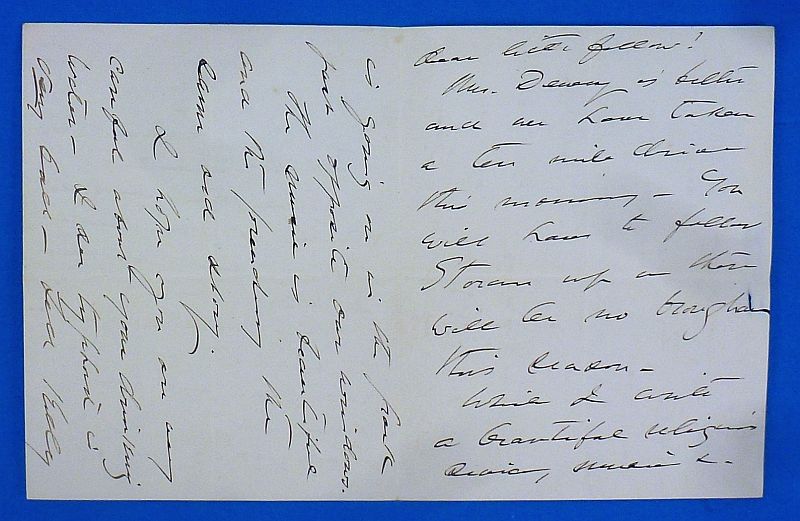 dear little fellow!
Mrs. Dewey is better
and we have taken
a ten mile drive
this morning – You
will have to follow
Storm up or there
will be no brougham
this season –
While I write
a beautiful religious
service, music &.
is going on in the park
park opposite our windows.
The music is beautiful
and the preaching the
same old story.
I hope you are very
careful about your drinking
water – I see typhoid is
very bad –